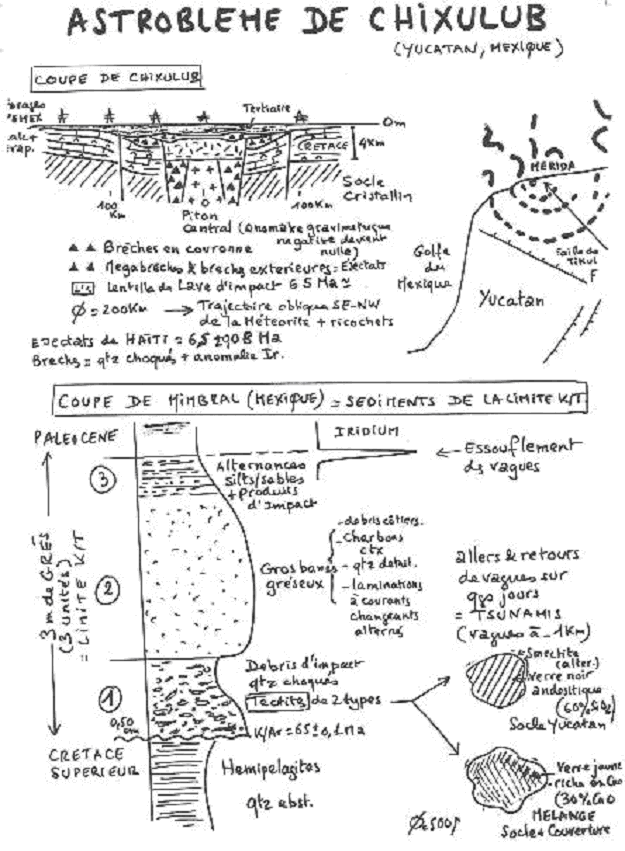 ASTROBLEME DE CHIXULUB
(YUCATAN, MEXIQUE)
COUPE DE CHIXULUB
Tertiaire
0m
CRETACE
4Km
Socle
Cristallin
100
Km
100Km
Piton
Central (anomalie gravimetrique
negative devenant
nulle)
▲ ▲ Brèches en couronne
▲ ▲ Megabreches & breches exterieures = Ejectats
Lentille de Lave d'impact 65 Ma
Ø = 200Km → Trajectoire oblique SE-NW
de la Météorite + ricochets
Ejectats de HAITI =
Breches = qtz choqués + anomalie Ir.
MERIDA
Golfe
du
Mexique
Faille de
F
Yucatan
COUPE DE MIMBRAL (MEXIQUE) = SEDIMENTS DE LA LIMITE K/T
PALEOCENE
IRIDIUM
← Essouflement
des vagues
3
Alternances
silts/sables
+ produits
d'impact
3m de GRES
(3 unités)
= LIMITE K/T
2
Gros bancs
gréseux
- debris côtiers.
- Charbons
ctx
- qtz detrit.
- laminations
à courants
changeants
alternés
allers & retours
de vagues sur
qqs jours
= TSUNAMIS
(vagues à ~1Km)
1
Debris d'impact
qtz choqués
Tectites de 2 types
K/Ar = 65 ± 0,1 Ma
0,50
cm
Smectite
(alter.)
Verre noir
andesitique
(60% SiO2)
Socle Yucatan
CRETACE
SUPERIEUR
Hemipelagites
qtz abst.
Verre jaune
riche en CaO
(30% CaO)
MELANGE
Socle + Couverture